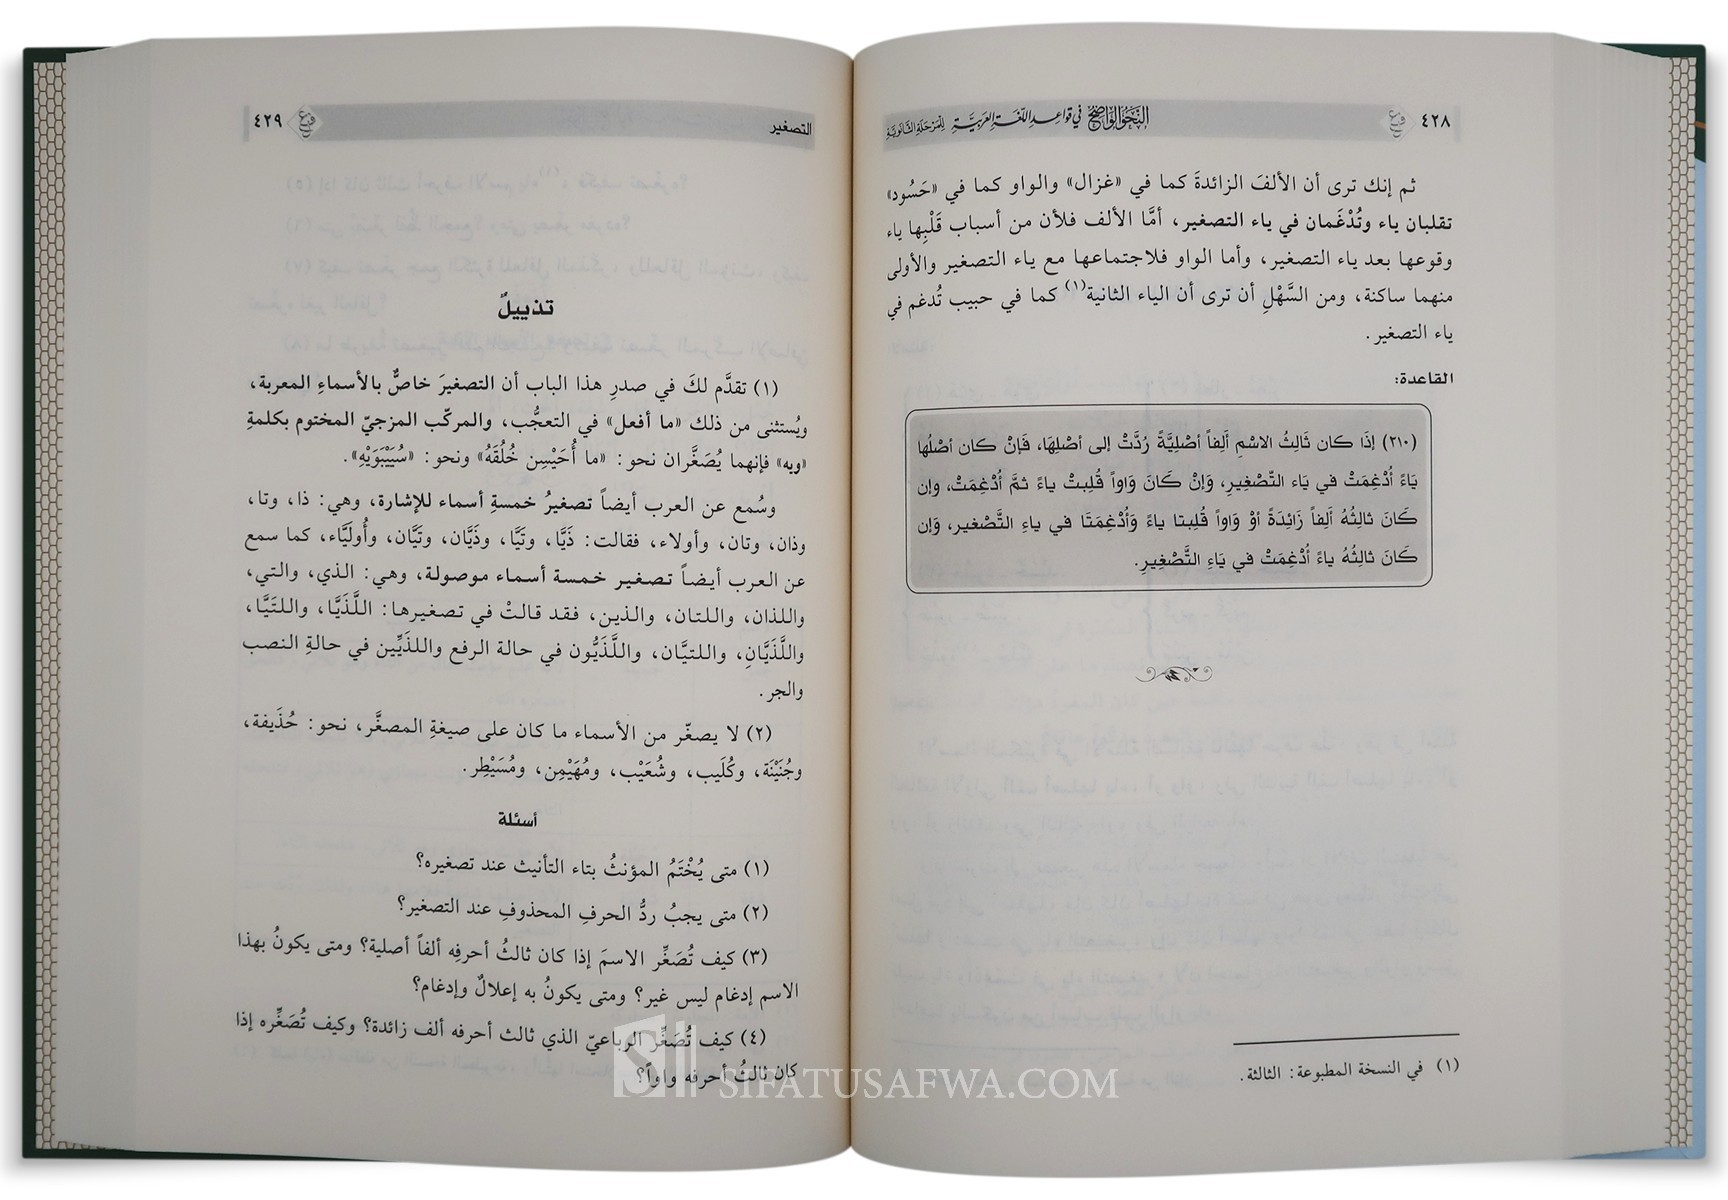 ٤٢٨
النَّحْوُ الوَاضِحُ في قواعد اللغة العربية للمرحلة الثانوية
ثم إنك ترى أن الألفَ الزائدةَ كما في «غزال» والواو كما في «حَسُود»
تقلبان ياء وتُدْغَمان في ياء التصغير، أمَّا الألف فلأن من أسباب قَلْبِها ياء
وقوعها بعد ياء التصغير، وأما الواو فلاجتماعها مع ياء التصغير والأولى
منهما ساكنة، ومن السَّهْلِ أن ترى أن الياء الثانية(١) كما في حبيب تُدغم في
ياء التصغير.
القاعدة:
(٢١٠) إذَا كان ثَالِثُ الاسْمِ ألِفاً أصْلِيَّةً رُدَّتْ إلى أصْلِهَا، فَإنْ كان أصْلُها
يَاءً أُدْغِمَتْ في يَاء التّصْغِيرِ، وَإنْ كَانَ وَاواً قُلِبتْ ياءً ثمَّ أُدْغِمَتْ، وإن
كَانَ ثالِثُهُ ألِفاً زَائِدَةً أوْ وَاواً قُلِبتا ياءً وَأُدْغِمَتَا في ياءِ التَّصْغير، وَإن
كَانَ ثالِثُهُ ياءً أُدْغِمَتْ في يَاءِ التَّصْغِيرِ.
(١) في النسخة المطبوعة: الثالثة.
التصغير
٤٢٩
تذييلٌ
(١) تقدَّم لكَ في صدرِ هذا الباب أن التصغيرَ خاصٌّ بالأسماءِ المعربة،
ويُستثنى من ذلك «ما أفعل» في التعجُّب، والمركّب المزجيّ المختوم بكلمةِ
«ويه» فإنهما يُصَغَّران نحو: «ما أُحَيْسِن خُلُقَهُ» ونحو: «سُيَيْبَوَيْهِ».
وسُمع عن العرب أيضاً تصغيرُ خمسةِ أسماء للإشارة، وهي: ذا، وتا،
وذان، وتان، وأولاء، فقالت: ذَيَّا، وتَيَّا، وذَيَّان، وتَيَّان، وأُوليَّاء، كما سمع
عن العرب أيضاً تصغير خمسة أسماء موصولة، وهي: الذي، والتي،
واللذان، واللتان، والذين، فقد قالتْ في تصغيرها: اللَّذَيَّا، واللتَيَّا،
واللَّذَيَّانِ، واللتيَّان، واللَّذَيُّون في حالة الرفع واللذَيِّين في حالةِ النصب
والجر.
(٢) لا يصغّر من الأسماء ما كان على صيغةِ المصغَّر، نحو: حُذَيفة،
وجُنَيْنَة، وكُلَيب، وشُعَيْب، ومُهَيْمِن، ومُسَيْطِر.
أسئلة
(١) متى يُخْتَمُ المؤنثُ بتاء التأنيث عند تصغيره؟
(٢) متى يجبُ ردُّ الحرفِ المحذوفِ عند التصغير؟
(٣) كيف تُصَغِّر الاسمَ إذا كان ثالثُ أحرفِه ألفاً أصلية؟ ومتى يكونُ بهذا
الاسم إدغام ليس غير؟ ومتى يكونُ به إعلالٌ وإدغام؟
(٤) كيف تُصَغِّر الرباعيّ الذي ثالث أحرفه ألف زائدة؟ وكيف تُصَغِّره إذا
كان ثالثُ أحرفه واواً؟
SIFATUSAFWA.COM